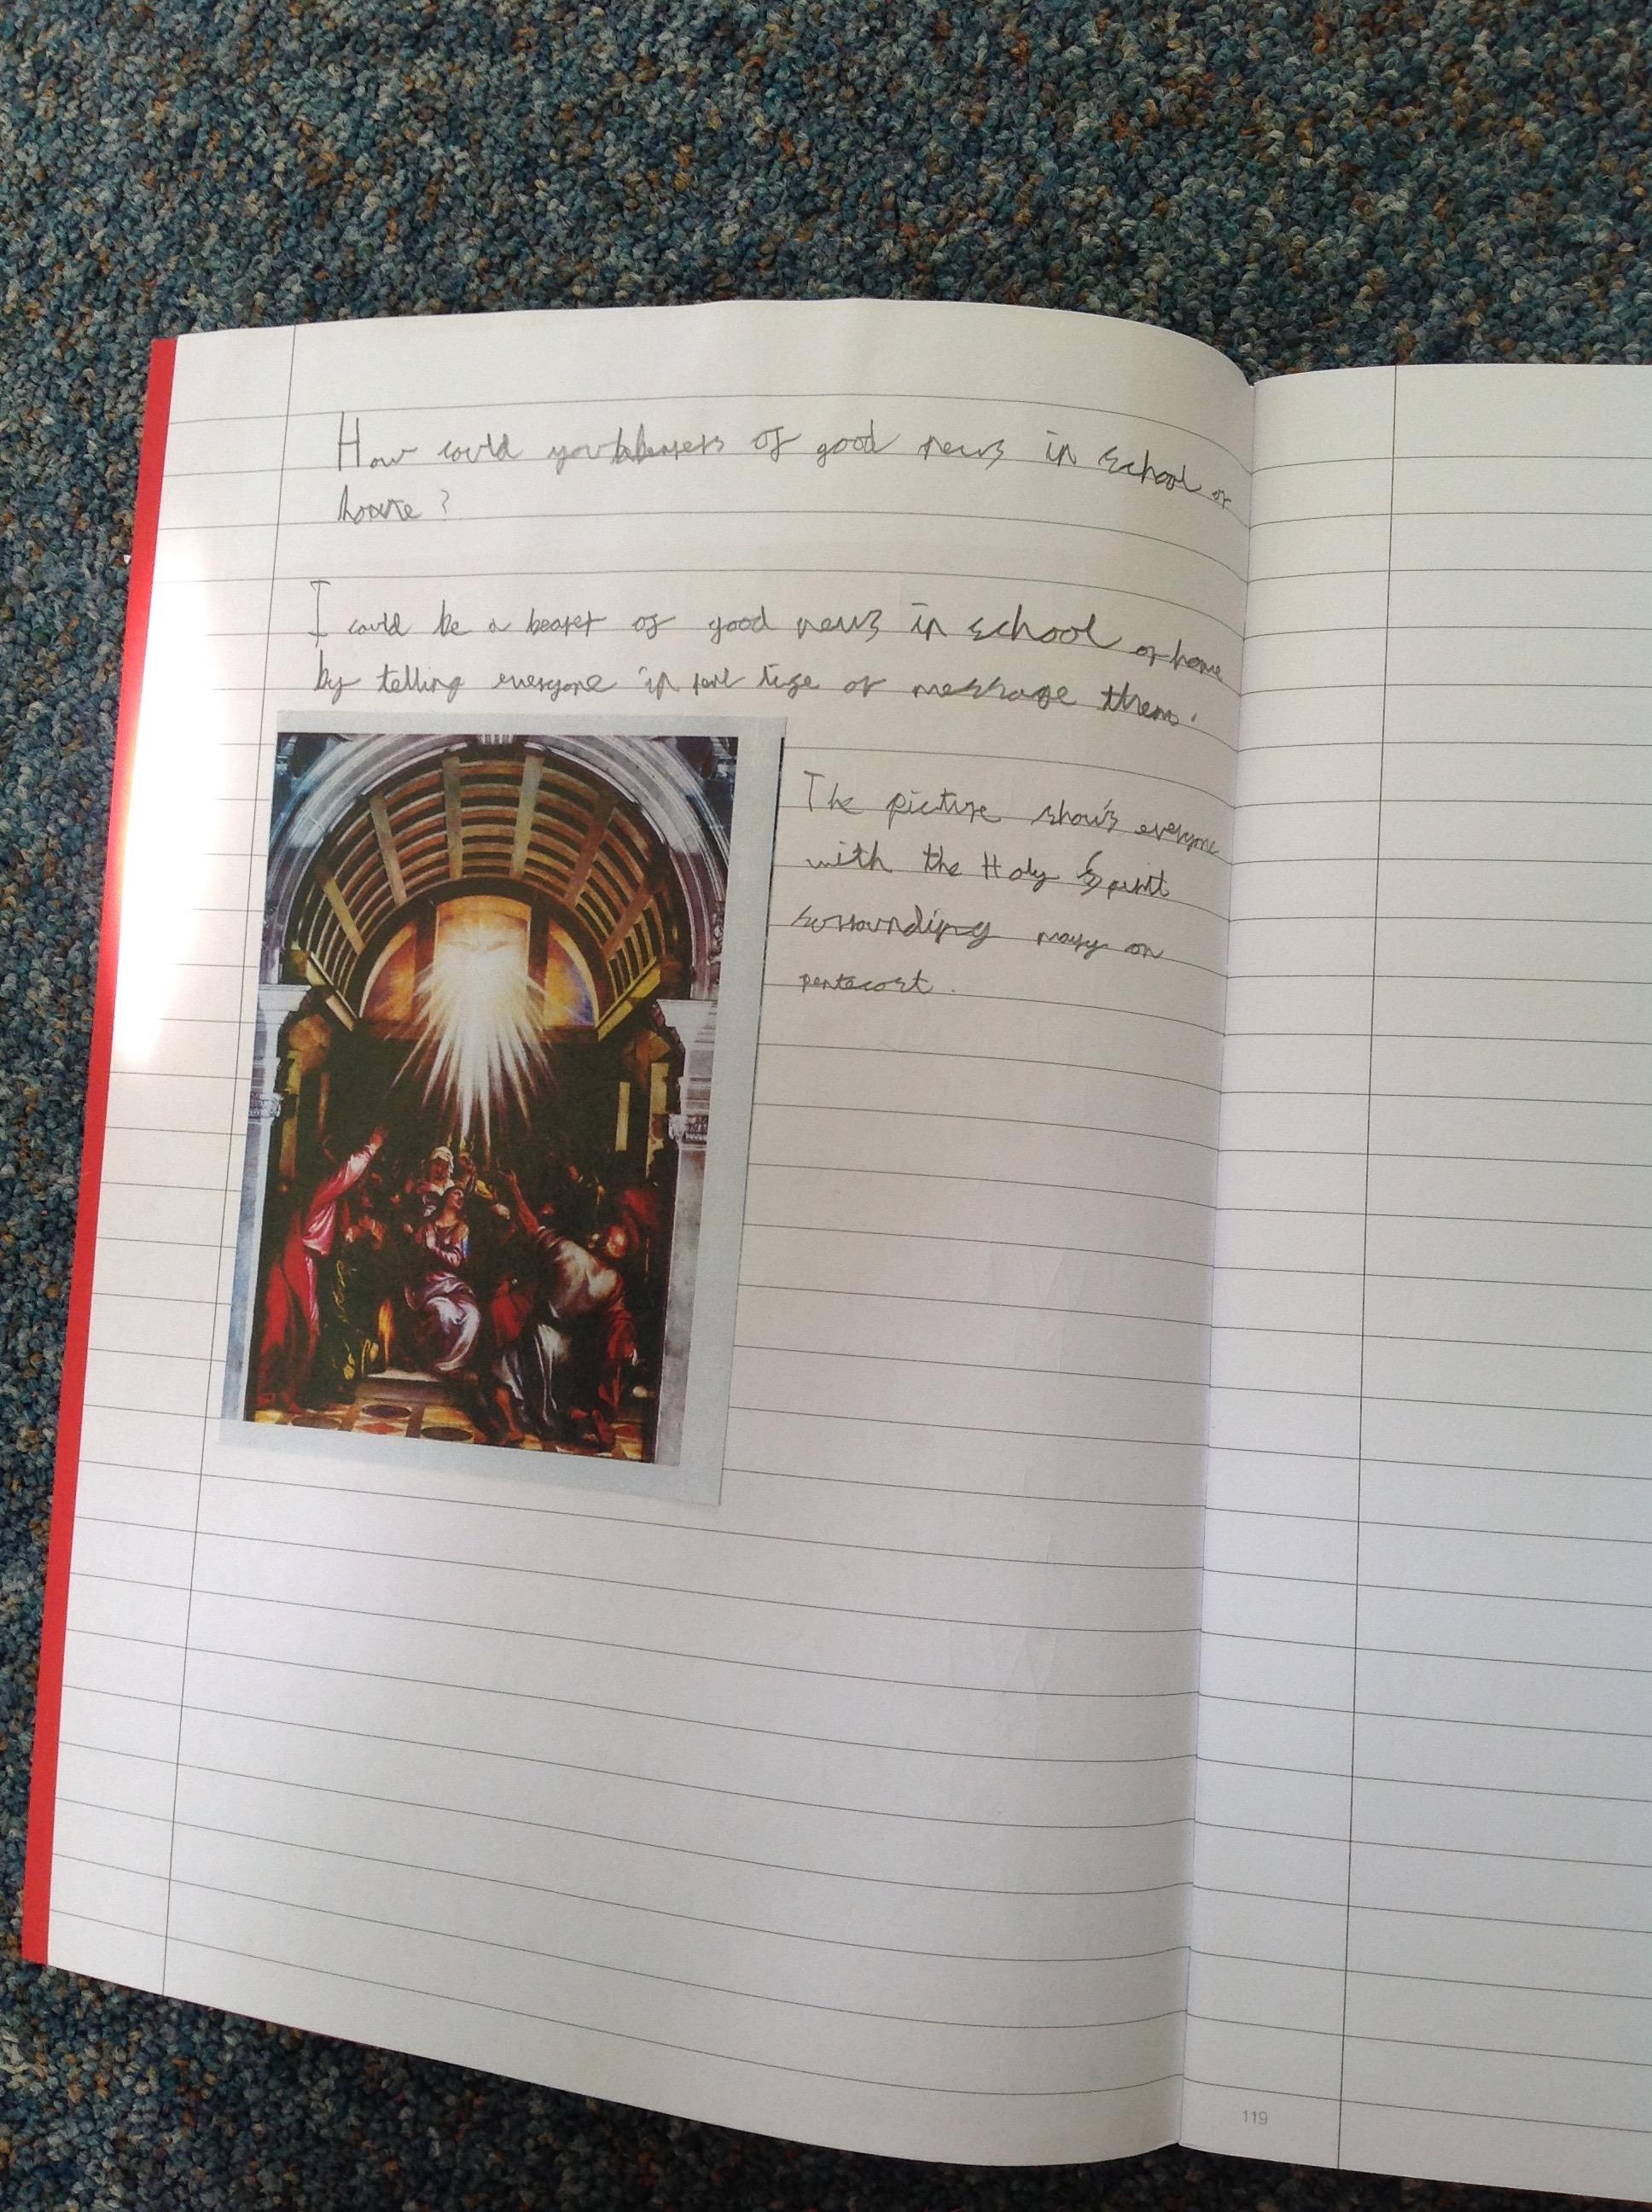 How could you be bearers of good news in school or
home?
I could be a bearer of good news in school or home
by telling everyone in real life or message them.
The picture shows everyone
with the Holy Spirit
surrounding mary on
pentecost.
119